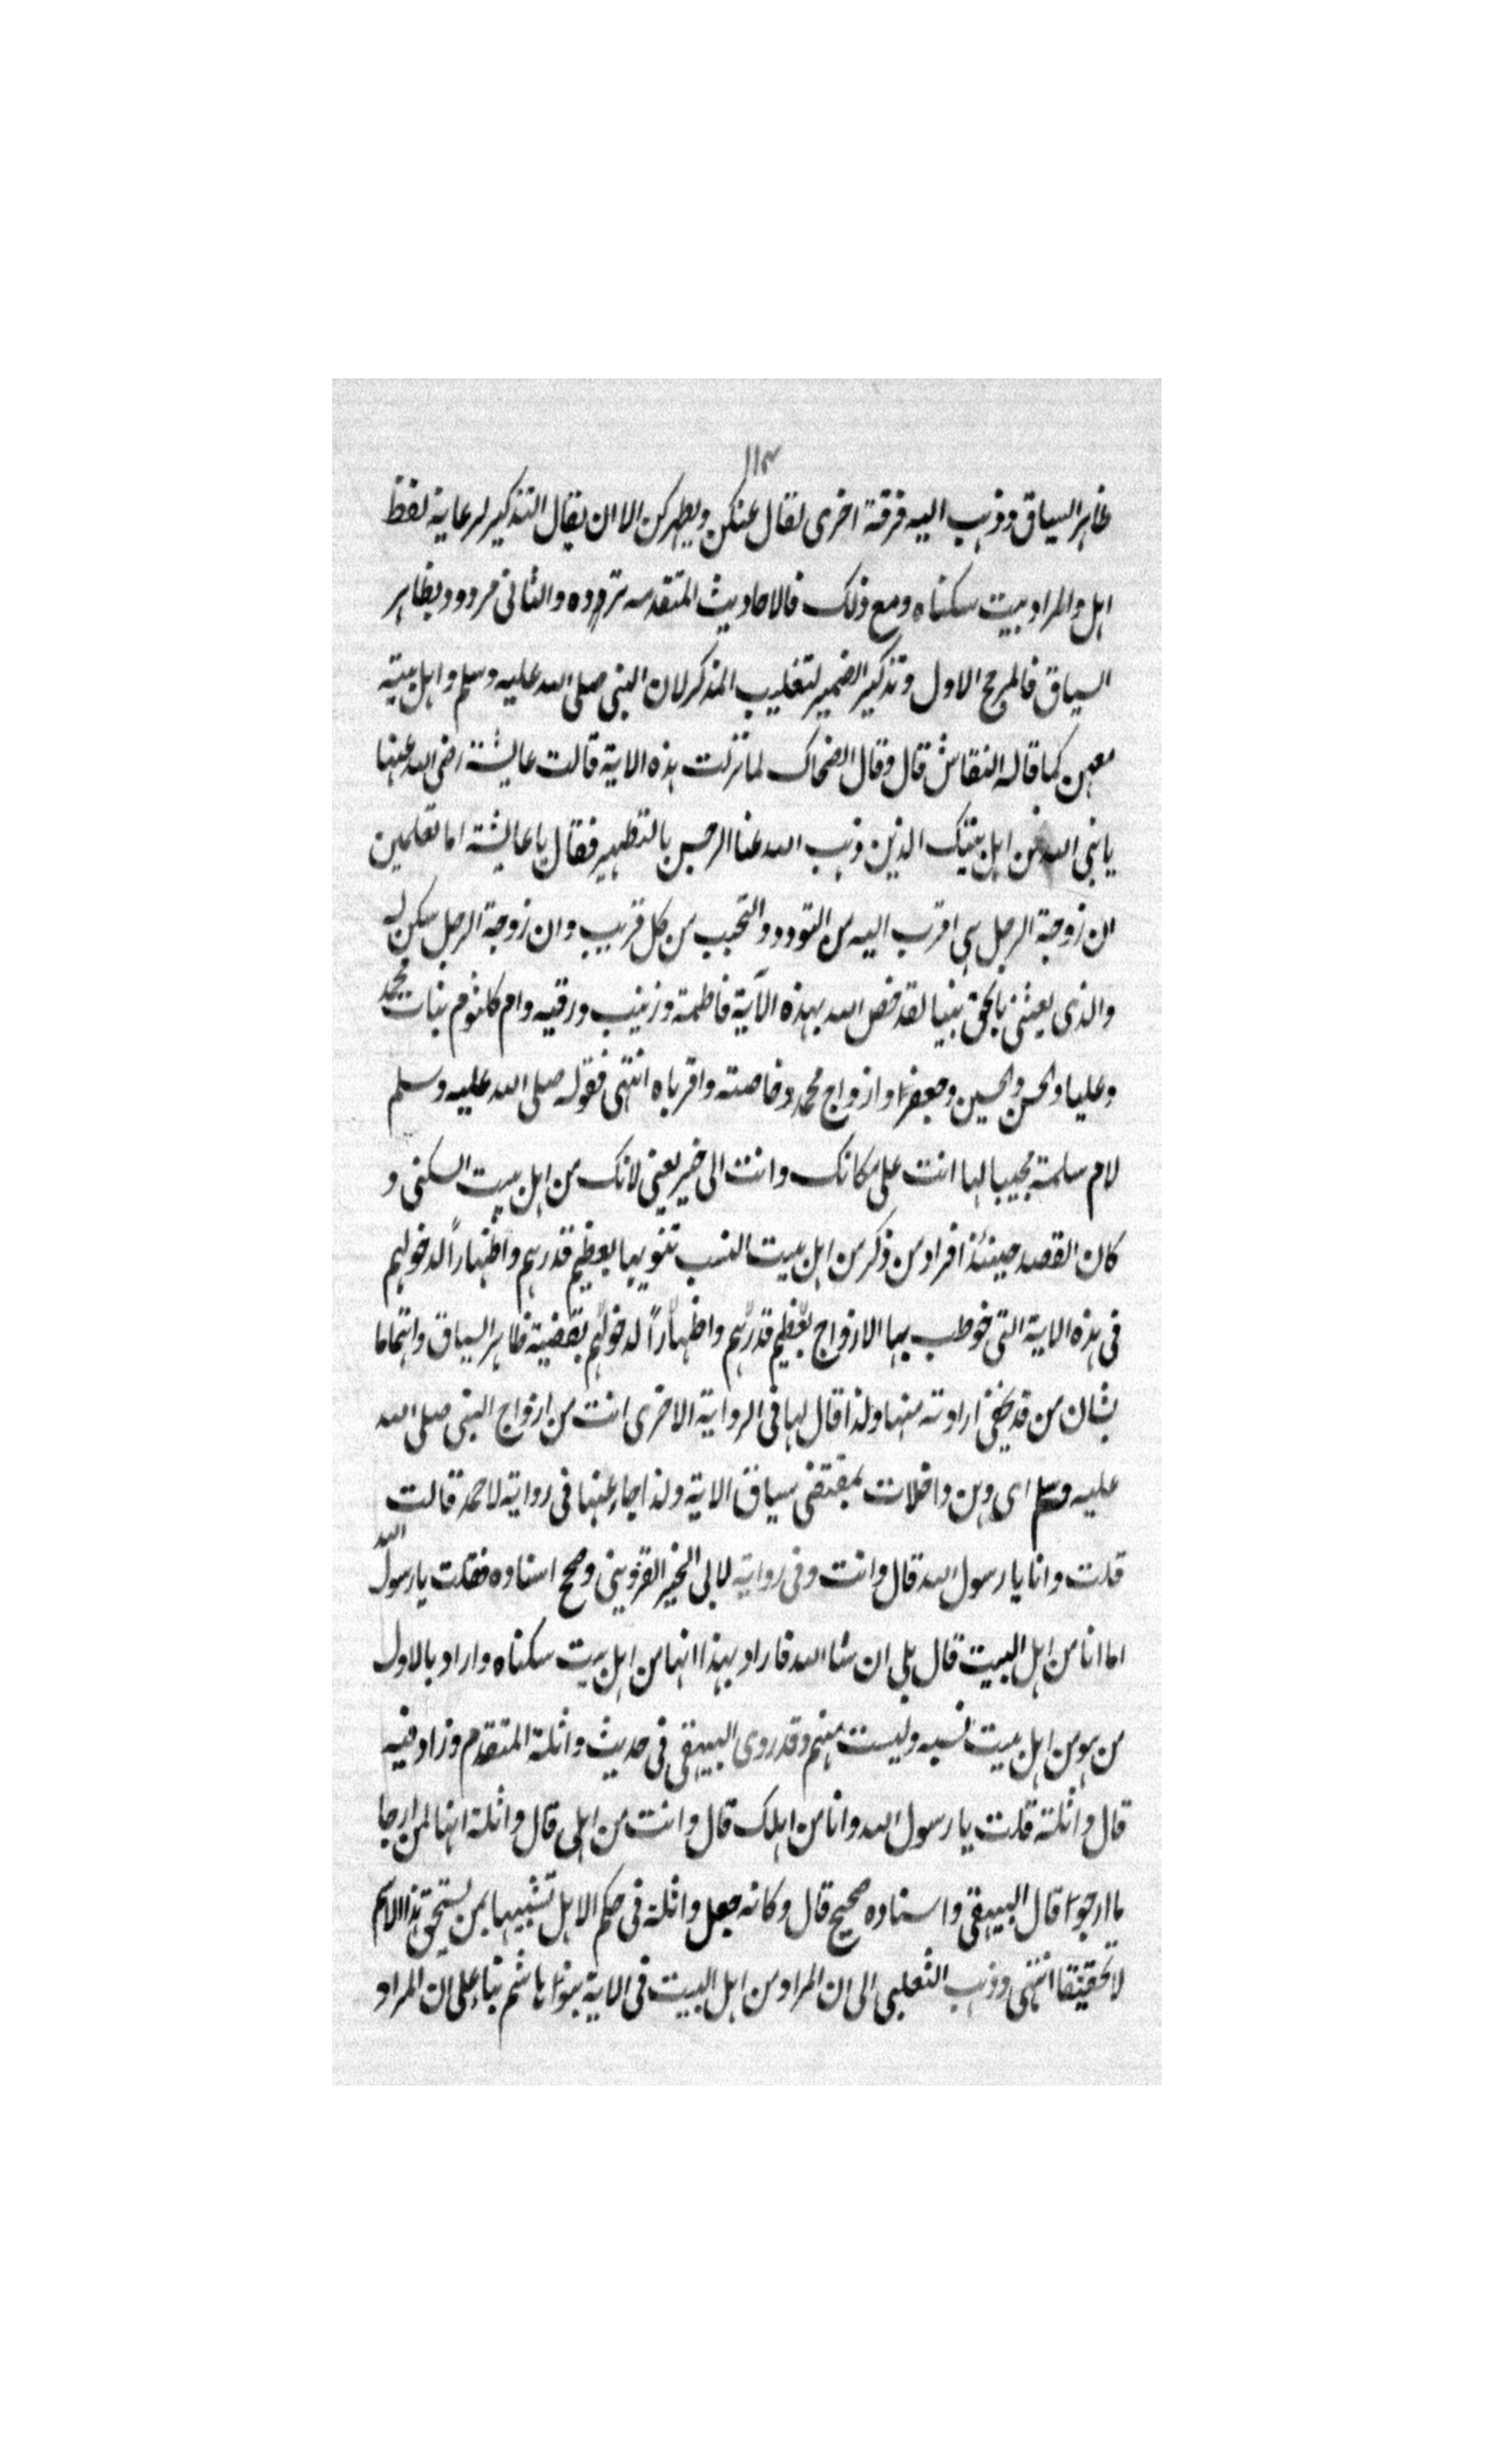 ١١٣
ظاهر السياق وذهب اليه فرقة اخرى لقال عنكن ويطهركن الا ان يقال التذكير لرعاية لفظ
اهل والمراد ببيت سكناه ومع ذلك فالاحاديث المتقدمه تردده والثانى مردود بظاهر
السياق فالمرجح الاول وتذكير الضمير لتغليب المذكر لان النبى صلى الله عليه وسلم واهل بيته
معهن كما قاله النقاش قال وقال الضحاك لما نزلت هذه الاية قالت عايشة رضى الله عنها
يا نبى الله من اهل بيتك الذين ذهب الله عنا الرجس بالتطهير فقال يا عايشة اما تعلمين
ان زوجة الرجل هى اقرب اليه من التودد والتحبب من كل قريب وان زوجة الرجل سكن له
والذى بعثنى بالحق نبيا لقد خص الله بهذه الآية فاطمة وزينب ورقيه وام كلثوم بنات محمد
وعليا والحسن والحسين وجعفرا وازواج محمد وخاصته واقرباه انتهى فقوله صلى الله عليه وسلم
لام سلمة مجيبا لها انت على مكانك وانت الى خير يعنى لانك من اهل بيت السكنى و
كان القصد حينئذ افراد من ذكر من اهل بيت النسب تنويها بعظيم قدرهم واظهاراً لدخولهم
فى هذه الاية التى خوطب بها الازواج بعظيم قدرهم واظهاراً لدخولهم بقضية ظاهر السياق واهتماما
بشان من قد يخفى ارادته منها ولذا قال لها فى الرواية الاخرى انت من ازواج النبى صلى الله
عليه وسلم اى وهن داخلات بمقتضى سياق الاية ولذا جاء عنها فى رواية لاحمد قالت
قلت وانا يا رسول الله قال وانت وفى رواية لابى الخير القزوينى وصحح اسناده فقلت يا رسول الله
اما انا من اهل البيت قال بلى ان شا الله فاراد بهذا انها من اهل بيت سكناه واراد بالاول
من هو من اهل بيت نسبه وليست منهم وقد روى البيهقى فى حديث واثلة المتقدم وزاد فيه
قال واثلة قلت يا رسول الله وانا من اهلك قال وانت من اهلى قال واثلة انها لمن ارجا
ما ارجوا قال البيهقى واسناده صحيح قال وكانه جعل واثلة فى حكم الاهل تشبيها بمن يستحق هذا الاسم
لا تحقيقا انتهى وذهب الثعلبى الى ان المراد من اهل البيت فى الاية بنوا هاشم بناء على ان المراد